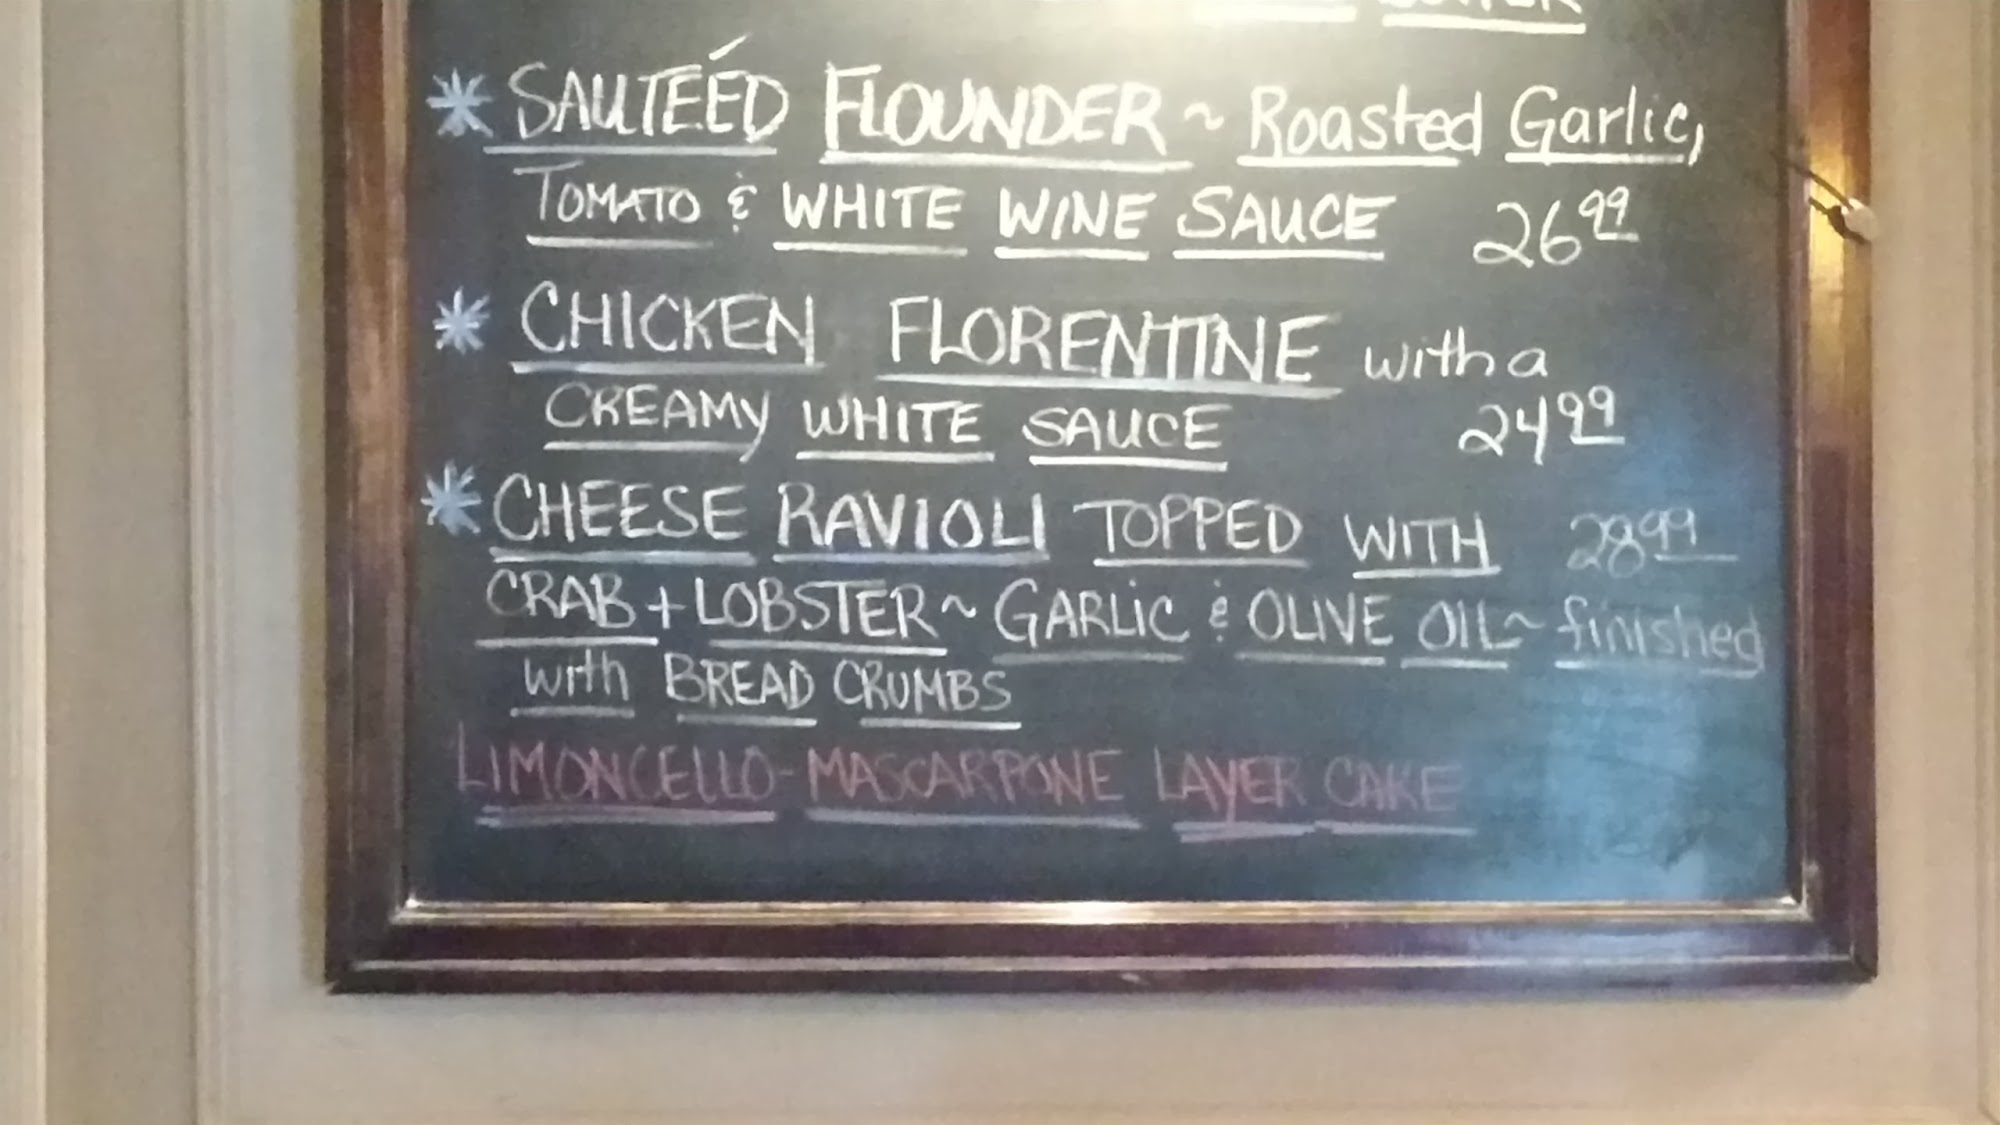 * SAUTEÉD FLOUNDER ~ Roasted Garlic,
TOMATO & WHITE WINE SAUCE 26 99
* CHICKEN FLORENTINE with a
CREAMY WHITE SAUCE 24 99
* CHEESE RAVIOLI TOPPED WITH 28 99
CRAB + LOBSTER ~ GARLIC & OLIVE OIL ~ finished
with BREAD CRUMBS
LIMONCELLO - MASCARPONE LAYER CAKE